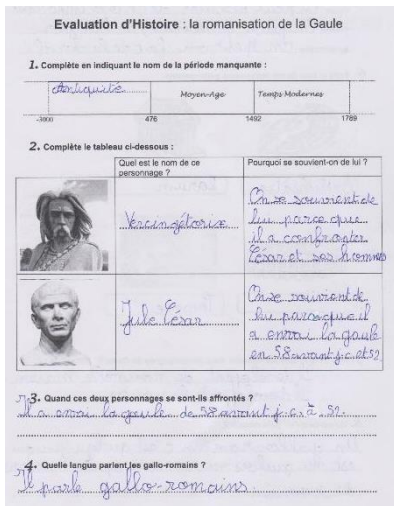 Evaluation d'Histoire : la romanisation de la Gaule
1. Complète en indiquant le nom de la période manquante :
Antiquité
Moyen-Age
Temps Modernes
-3000
476
1492
1789
2. Complète le tableau ci-dessous :
Quel est le nom de ce
personnage ?
Pourquoi se souvient-on de lui ?
Vercingétorix
On se souvient de
lui parce que
il a confronter
César et ses hommes
Jule César
On se souvient de
lui parce que il
a envai la gaule
en 58 avant j.c et 52
3. Quand ces deux personnages se sont-ils affrontés ?
Il a envai la gaule de 58 avant j.c. à 52.
4. Quelle langue parlent les gallo-romains ?
Il parle gallo-romains.